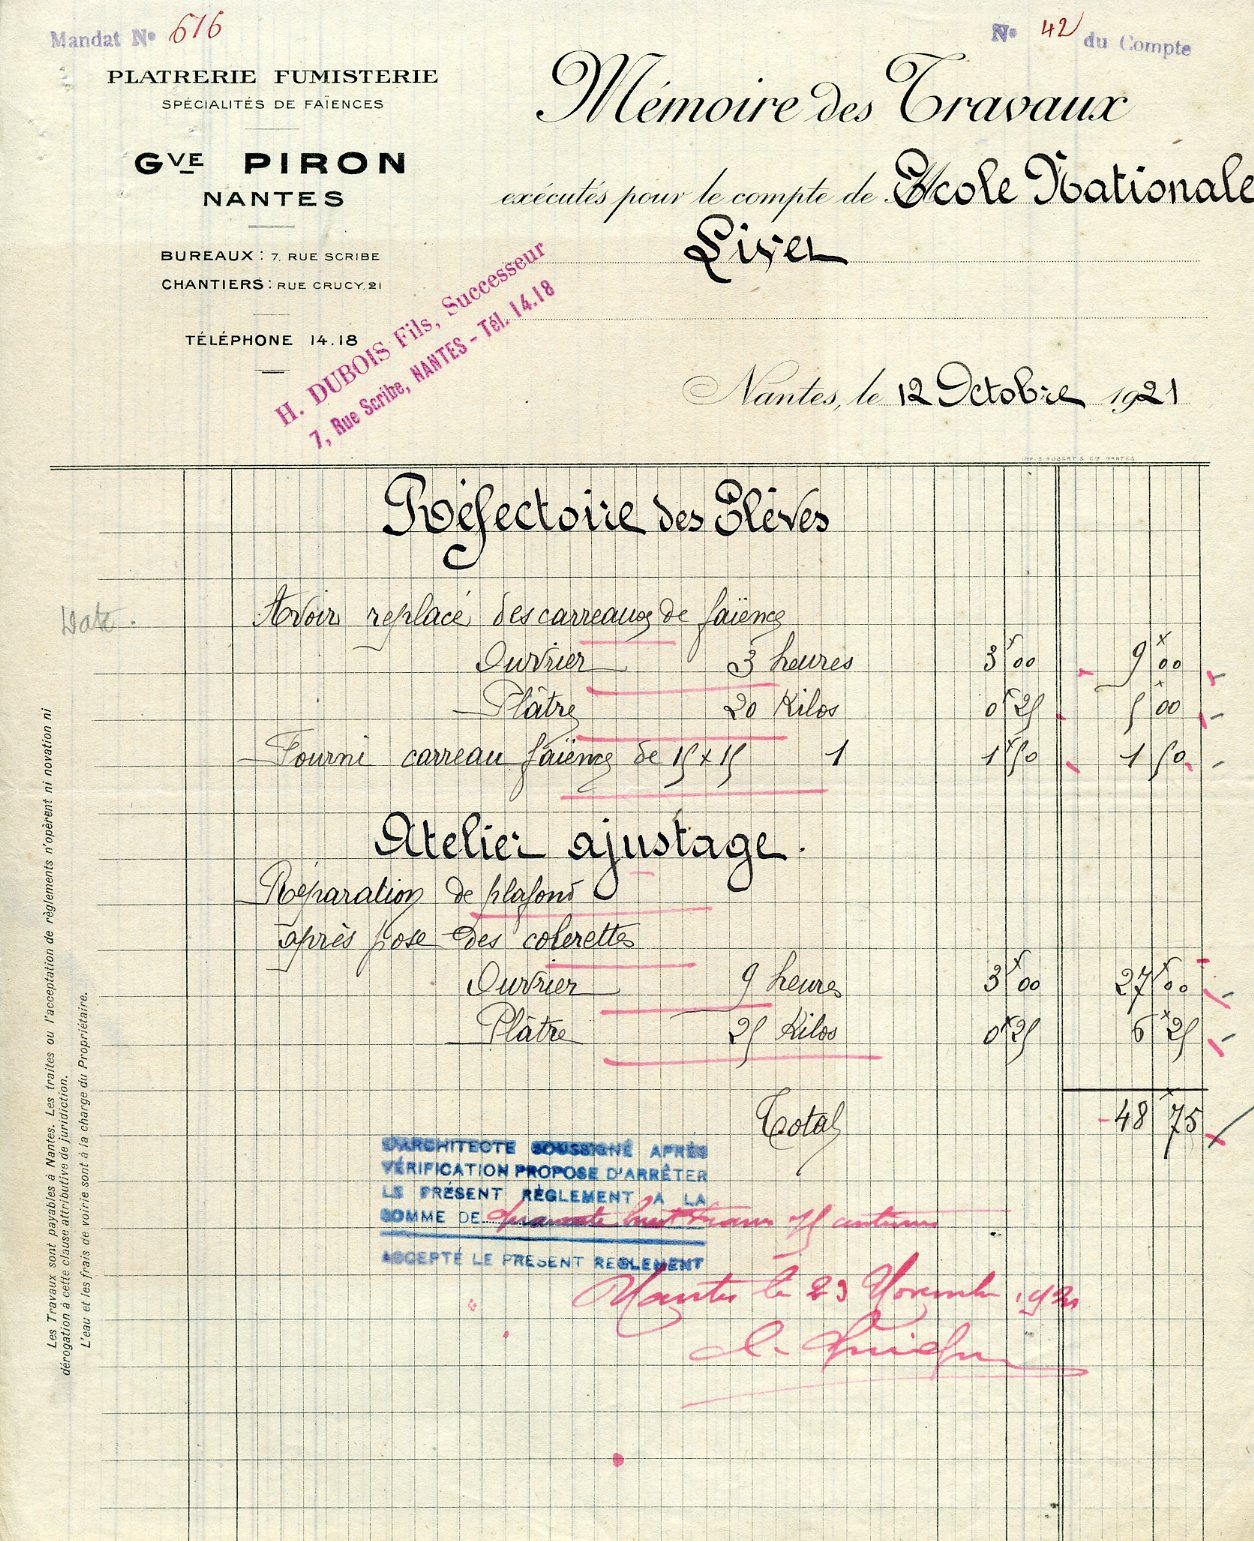 Mandat No 616
No 42 du Compte
PLATRERIE FUMISTERIE
SPÉCIALITÉS DE FAÏENCES
GVE PIRON
NANTES
BUREAUX : 7, RUE SCRIBE
CHANTIERS : RUE CRUCY, 21
TÉLÉPHONE 14.18
H. DUBOIS Fils, Successeur
7, Rue Scribe, NANTES - Tél. 14.18
Mémoire des Travaux
exécutés pour le compte de Ecole Nationale
Livet
Nantes, le 12 Octobre 1921
Réfectoire des Elèves
Avoir replacé des carreaux de faïence
Ouvrier 3 heures 3 00 9 00
Plâtre 20 Kilos 0 25 5 00
Fourni carreau faïence de 15 x 15 1 1 50 1 50
Atelier ajustage.
Réparation de plafond
après pose des colerettes
Ouvrier 9 heures 3 00 27 00
Plâtre 25 Kilos 0 25 6 25
Total 48 75
L'ARCHITECTE SOUSSIGNÉ APRÈS
VÉRIFICATION PROPOSE D'ARRÊTER
LE PRÉSENT RÈGLEMENT A LA
SOMME DE quarante huit francs 75 centimes
ACCEPTÉ LE PRÉSENT REGLEMENT
Nantes le 23 Novembre 1921
Les Travaux sont payables à Nantes. Les traites ou l'acceptation de règlements n'opèrent ni novation ni
dérogation à cette clause attributive de juridiction.
L'eau et les frais de voirie sont à la charge du Propriétaire.